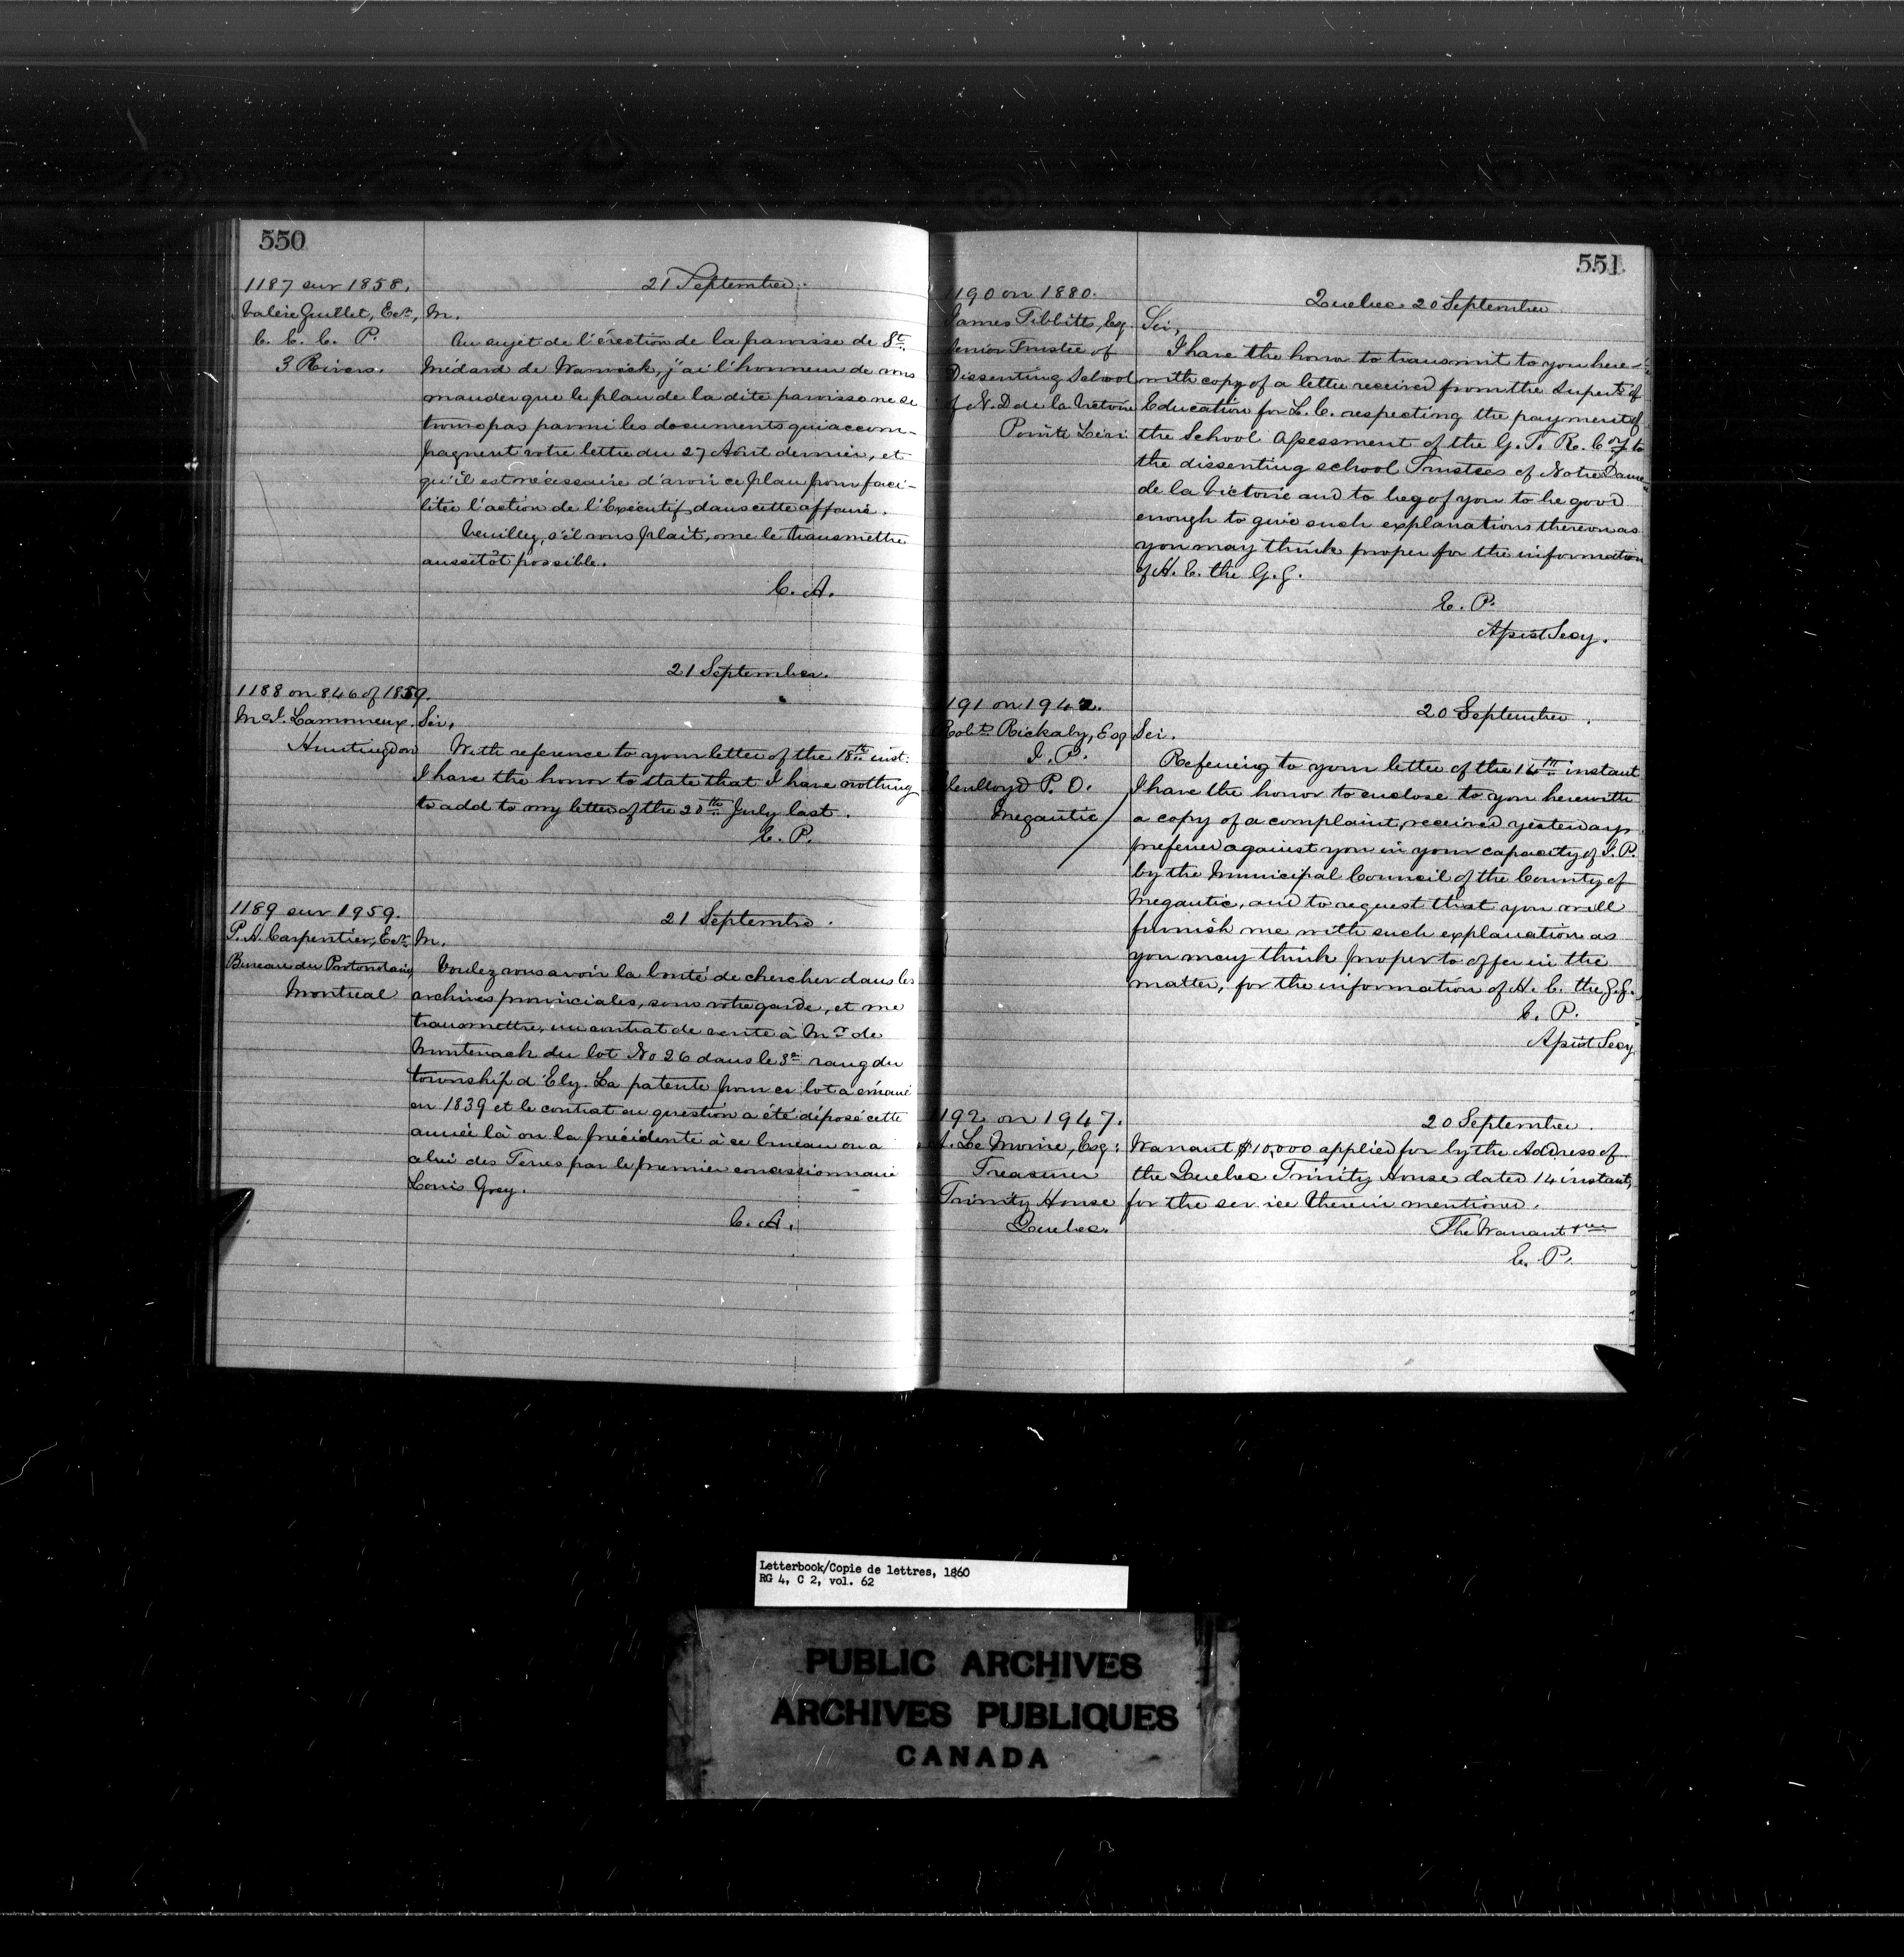 550
1187 sur 1858.
Valère Guillet, Ecr.,
C. C. C. P.
3 Rivers.
21 Septembre.
M.
Au sujet de l'érection de la paroisse de St.
Médard de Warwick, j'ai l'honneur de vous
mander que le plan de la dite paroisse ne se
trouve pas parmi les documents qui accom-
pagnent votre lettre du 27 Août dernier, et
qu'il est nécessaire d'avoir ce plan pour faci-
liter l'action de l'Exécutif dans cette affaire.
Veuillez, s'il vous plait, me le transmettre
aussitôt possible.
C. A.
1188 on 846 of 1859.
Lamoureux.
Huntingdon
21 September.
Sir,
With reference to your letter of the 18th inst:
I have the honor to state that I have nothing
to add to my letter of the 20th July last.
E. P.
1189 sur 1959.
P. A. Carpentier, Ecr.
Bureau du Protonotaire
Montreal
21 Septembre.
M.
Voulez vous avoir la bonté de chercher dans les
archives provinciales, sous votre garde, et me
transmettre, un contrat de vente à Mr de
Montenach du lot No 26 dans le 3e rang du
township d'Ely. La patente pour ce lot a émané
en 1839 et le contrat en question a été déposé cette
année là ou la précédente à ce bureau ou a
celui des Terres par le premier concessionnaire
Louis Grey.
C. A.
551
1190 on 1880.
James Tibbitts, Esq.
Senior Trustee of
Dissenting School
of N. D de la Victoire
Pointe Levi
Quebec 20 September
Sir,
I have the honor to transmit to you here-
with copy of a letter received from the Supert. of
Education for L. C. respecting the payment of
the School Assessment of the G. T. R. Coy to
the dissenting school Trustees of Notre Dame
de la Victoire and to beg of you to be good
enough to give such explanations thereon as
you may think proper for the information
of H. E. the G. G.
E. P.
Assist Secy.
1191 on 1942.
Robt. Rickaby, Esq
J. P.
Glenlloyd P. O.
Megantic
20 September.
Sir.
Referring to your letter of the 14th instant
I have the honor to enclose to you herewith
a copy of a complaint, received yesterday
preferred against you in your capacity of J. P.
by the Municipal Council of the County of
Megantic, and to request that you will
furnish me with such explanation as
you may think proper to offer in the
matter, for the information of H. E. the G. G.
E. P.
Assist Secy
1192 on 1947.
A. Le Moine, Esq:
Treasurer
Trinity House
Quebec.
20 September.
Warrant $10,000 applied for by the Address of
the Quebec Trinity House dated 14 instant,
for the service therein mentioned.
The Warrant
E. P.
Letterbook/Copie de lettres, 1860
RG 4, C 2, vol. 62
PUBLIC ARCHIVES
ARCHIVES PUBLIQUES
CANADA